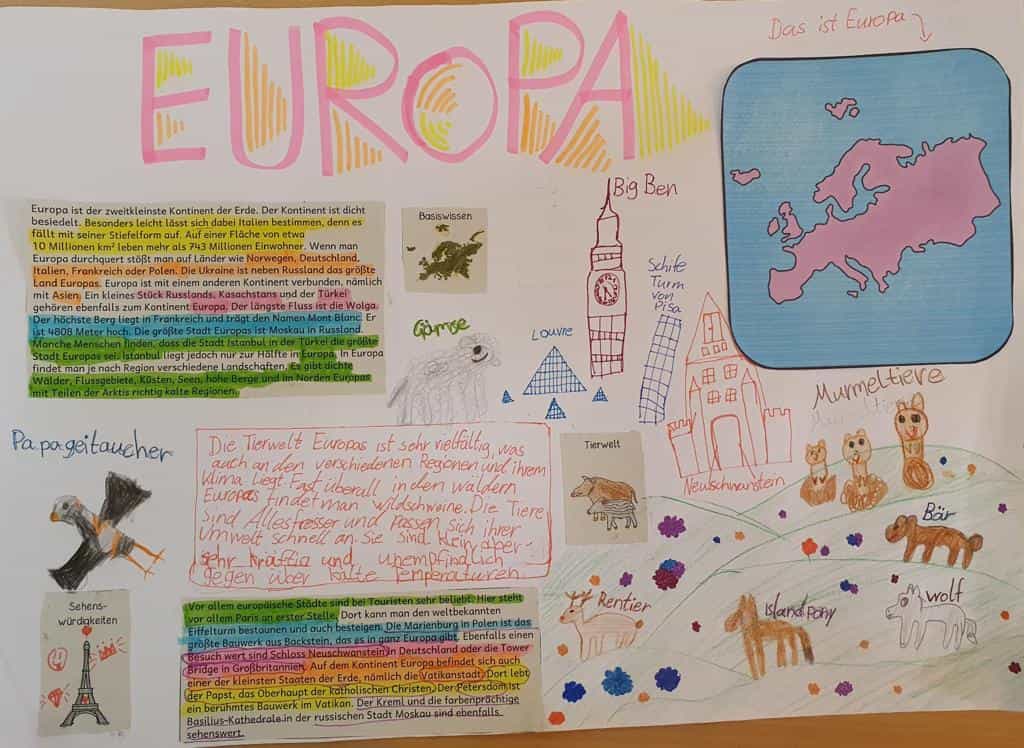 EUROPA
Das ist Europa
Europa ist der zweitkleinste Kontinent der Erde. Der Kontinent ist dicht
besiedelt. Besonders leicht lässt sich dabei Italien bestimmen, denn es
fällt mit seiner Stiefelform auf. Auf einer Fläche von etwa
10 Millionen km² leben mehr als 743 Millionen Einwohner. Wenn man
Europa durchquert stößt man auf Länder wie Norwegen, Deutschland,
Italien, Frankreich oder Polen. Die Ukraine ist neben Russland das größte
Land Europas. Europa ist mit einem anderen Kontinent verbunden, nämlich
mit Asien. Ein kleines Stück Russlands, Kasachstans und der Türkei
gehören ebenfalls zum Kontinent Europa. Der längste Fluss ist die Wolga.
Der höchste Berg liegt in Frankreich und trägt den Namen Mont Blanc. Er
ist 4808 Meter hoch. Die größte Stadt Europas ist Moskau in Russland.
Manche Menschen finden, dass die Stadt Istanbul in der Türkei die größte
Stadt Europas sei. Istanbul liegt jedoch nur zur Hälfte in Europa. In Europa
findet man je nach Region verschiedene Landschaften. Es gibt dichte
Wälder, Flussgebiete, Küsten, Seen, hohe Berge und im Norden Europas
mit Teilen der Arktis richtig kalte Regionen.
Basiswissen
Gämse
Big Ben
Louvre
Schife
Turm
von
Pisa
Neuschwanstein
Papageitaucher
Die Tierwelt Europas ist sehr vielfältig, was
auch an den verschiedenen Regionen und ihrem
Klima liegt. Fast überall in den wäldern
Europas findet man wildschweine. Die Tiere
sind Allesfresser und passen sich ihrer
Umwelt schnell an. Sie sind klein, aber
sehr kräftig und unempfindlich
gegen über kalte Temperaturen.
Tierwelt
Murmeltiere
Bär
Rentier
Islandpony
wolf
Sehens-
würdigkeiten
Vor allem europäische Städte sind bei Touristen sehr beliebt. Hier steht
vor allem Paris an erster Stelle. Dort kann man den weltbekannten
Eiffelturm bestaunen und auch besteigen. Die Marienburg in Polen ist das
größte Bauwerk aus Backstein, das es in ganz Europa gibt. Ebenfalls einen
Besuch wert sind Schloss Neuschwanstein in Deutschland oder die Tower
Bridge in Großbritannien. Auf dem Kontinent Europa befindet sich auch
einer der kleinsten Staaten der Erde, nämlich die Vatikanstadt. Dort lebt
der Papst, das Oberhaupt der katholischen Christen. Der Petersdom ist
ein berühmtes Bauwerk im Vatikan. Der Kreml und die farbenprächtige
Basilius-Kathedrale in der russischen Stadt Moskau sind ebenfalls
sehenswert.